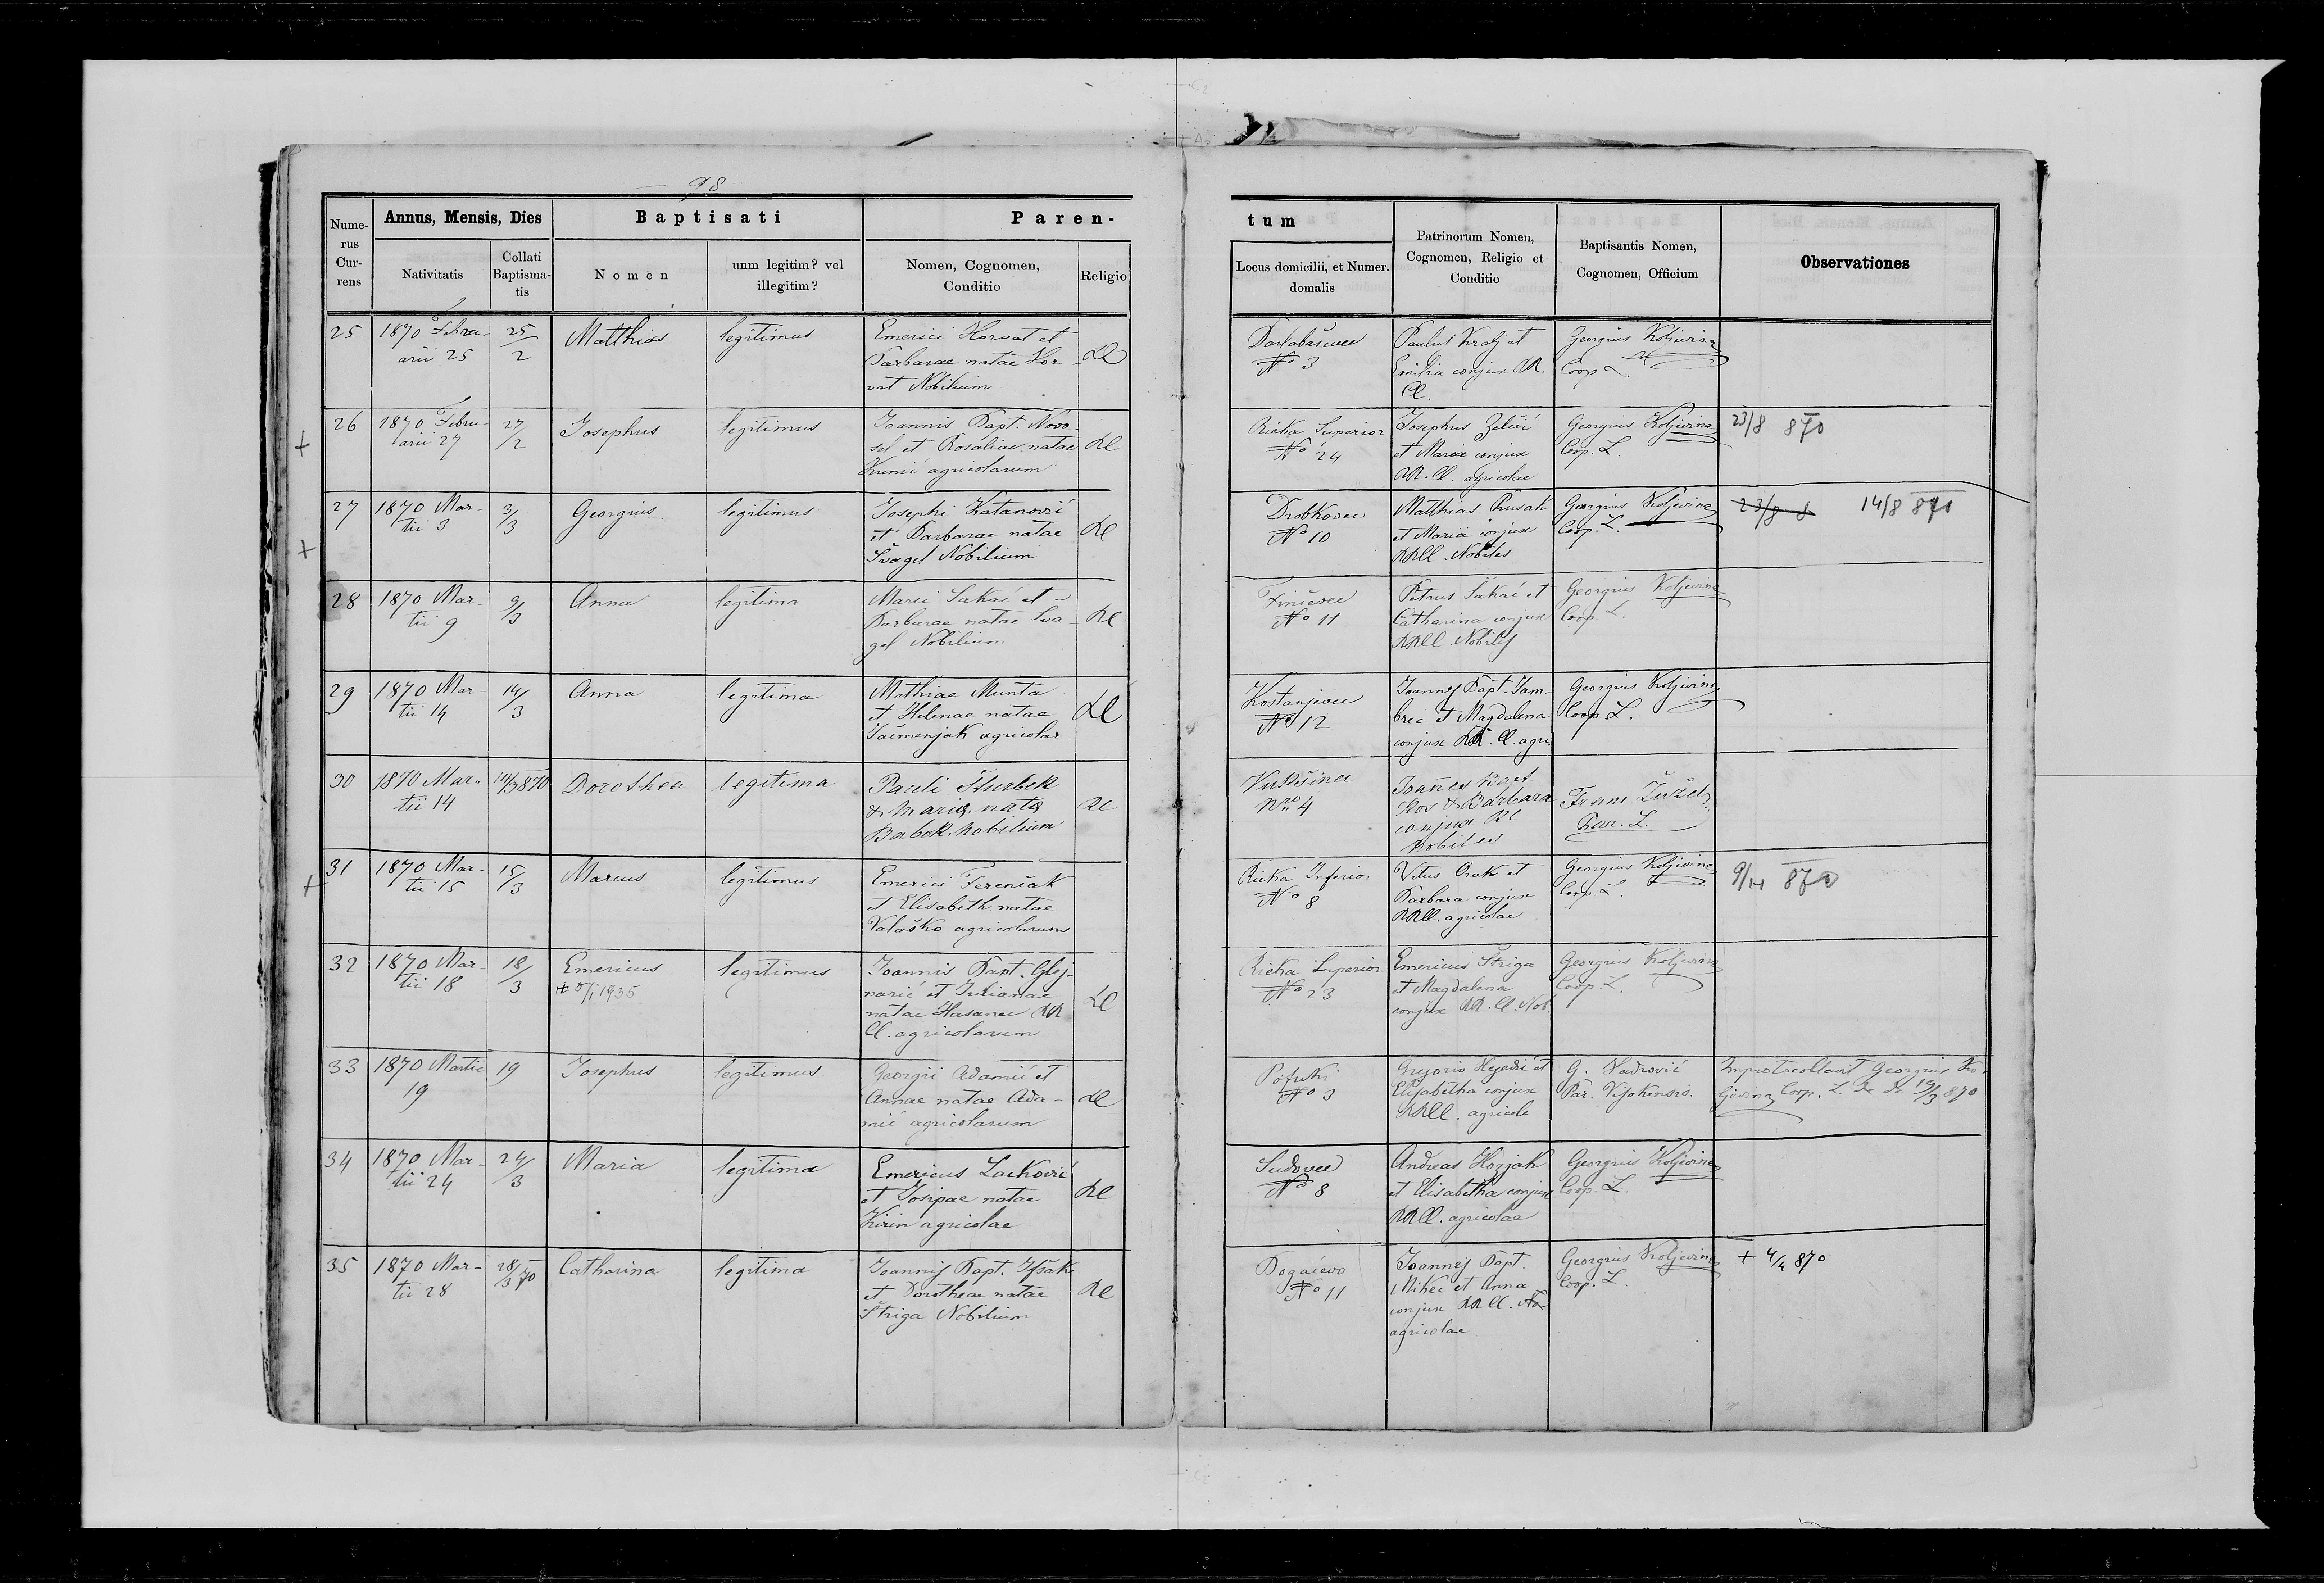 98
Nume-
rus
Cur-
rens
Annus, Mensis, Dies
Nativitatis
Collati
Baptisma-
tis
Baptisati
Nomen
unm legitim? vel
illegitim?
Paren-
Nomen, Cognomen,
Conditio
Religio
tum
Locus domicilii, et Numer.
domalis
Patrinorum Nomen,
Cognomen, Religio et
Conditio
Baptisantis Nomen,
Cognomen, Officium
Observationes
25
1870 Febru-
arii 25
25/2
Matthias
legitimus
Emerici Horvat et
Barbarae natae Hor-
vat Nobilium
No 3
Paulus Kralj et
Emilia conjux RR.
CC.
Georgius Koljivina
Coop L.
26
1870 Febru-
arii 27
27/2
Josephus
legitimus
Joannis Bapt. Novo-
sel et Rosaliae natae
Kunić agricolarum
RC
Rieka Superior
No 24
Josephus Zelić
et Maria conjux
RR. CC. agricolae
Georgius Koljivina
Coop. L.
23/8 870
27
1870 Mar-
tii 3
3/3
Georgius
legitimus
Josephi Katanović
et Barbarae natae
Švagel Nobilium
RC
Drobkovec
No 10
Matthias Rusak
et Maria conjux
RRCC. Nobiles
Georgius Koljivina
Coop. L.
23/8 8 14/8 870
28
1870 Mar-
tii 9
9/3
Anna
legitima
Marci Sakač et
Barbarae natae Šva-
gel Nobilium
RC
Finčevec
No 11
Petrus Sakač et
Catharina conjux
RRCC. Nobiles
Georgius Koljivina
Coop. L.
29
1870 Mar-
tii 14
14/3
Anna
legitima
Mathiae Munta
et Helenae natae
Jačmenjak agricolar.
RC
Kostanjevec
No 12
Joannes Bapt. Jam-
brec et Magdalena
conjux RR. CC. agri.
Georgius Koljivina
Coop. L.
30
1870 Mar-
tii 14
14/3 870
Dorothea
legitima
Pauli Šturbek
& Maria nata
Babok Nobilium
RC
Vukšina
Nro 4
Joannes Bapt
Kos & Barbara
conjux RC
Nobiles
Franc Žužel
Par. L.
31
1870 Mar-
tii 15
15/3
Marcus
legitimus
Emerici Ferenčak
et Elisabeth natae
Valaško agricolarum
Rieka Inferior
No 8
Vitus Crak et
Barbara conjux
RRCC. agricolae
Georgius Koljivina
Coop. L.
870
32
1870 Mar-
tii 18
18/3
Emericus
+ 5/1 1935
legitimus
Joannis Bapt. Gloj-
narić et Julianae
natae Hasanec RR
CC. agricolarum
RC
Rieka Superior
No 23
Emericus Štriga
et Magdalena
conjux RR. CC. Nob.
Georgius Koljivina
Coop. L.
33
1870 Martii
19
19
Josephus
legitimus
Georgii Adamić et
Annae natae Ada-
mić agricolarum
RC
Pofuki
No 3
Gregorio Hegedić et
Elisabetha conjux
RRCC. agricole
Par. Visokensis.
Improtocollavit Georgius Ko-
ljivina Coop. L. de de 19/3 870
34
1870 Mar-
tii 24
24/3
Maria
legitima
Emericus Lacković
et Josipae natae
Kirin agricolae
RC
Sudovec
No 8
Andreas Hozjak
et Elisabetha conjux
RRCC. agricolae
Georgius Koljivina
Coop. L.
35
1870 Mar-
tii 28
28/3 70
Catharina
legitima
Joannis Bapt. Ipšak
et Dorotheae natae
Štriga Nobilium
RC
Bogačevo
No 11
Joannes Bapt.
Mikec et Anna
conjux RR CC. No
agricolae
Georgius Koljivina
Coop. L.
+ 4/4 870